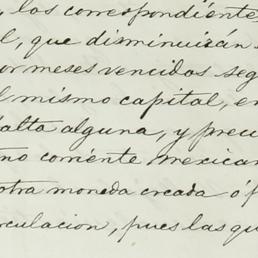 , los correspondiente
l, que disminuirán s
or meses vencidos seg
l mismo capital, en
falta alguna, y precu
mo corriente mexican
otra moneda creada ó p
rculacion, pues las qu